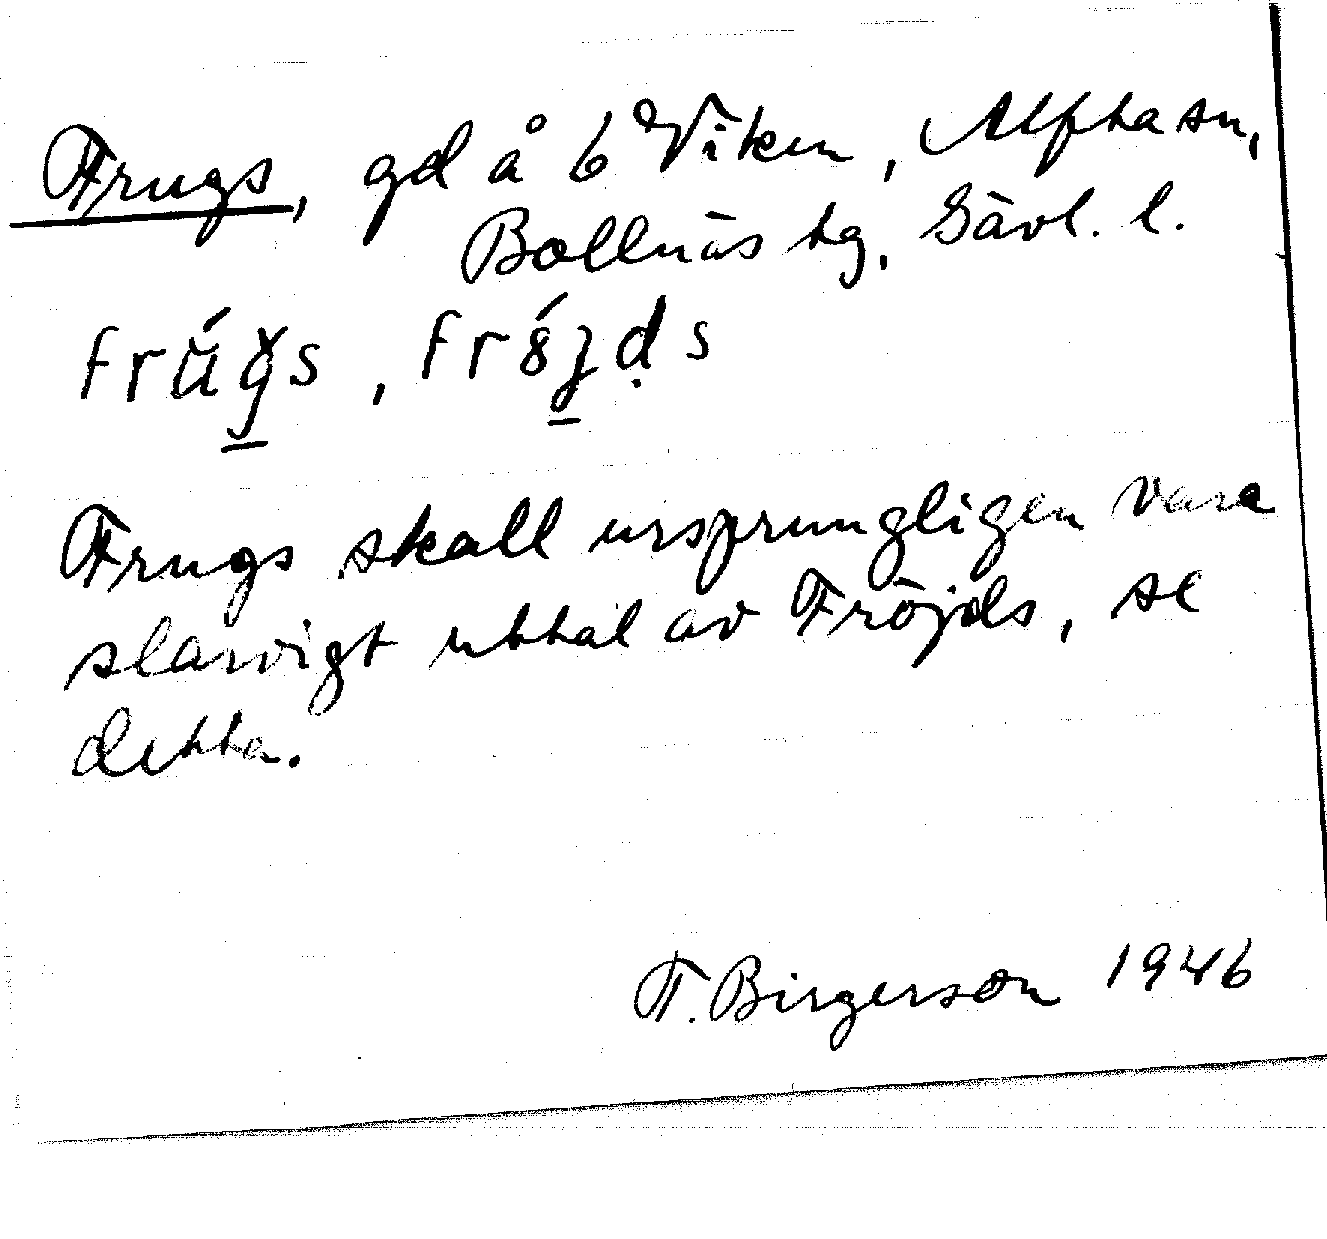 Frugs, gd å 6 Viken, Alfta sn,
Bollnäs tg, Gävl. l.
frúgs, frǿjds
Frugs skall ursprungligen vara
slarvigt uttal av Fröjds, se
detta.
T. Birgerson 1946